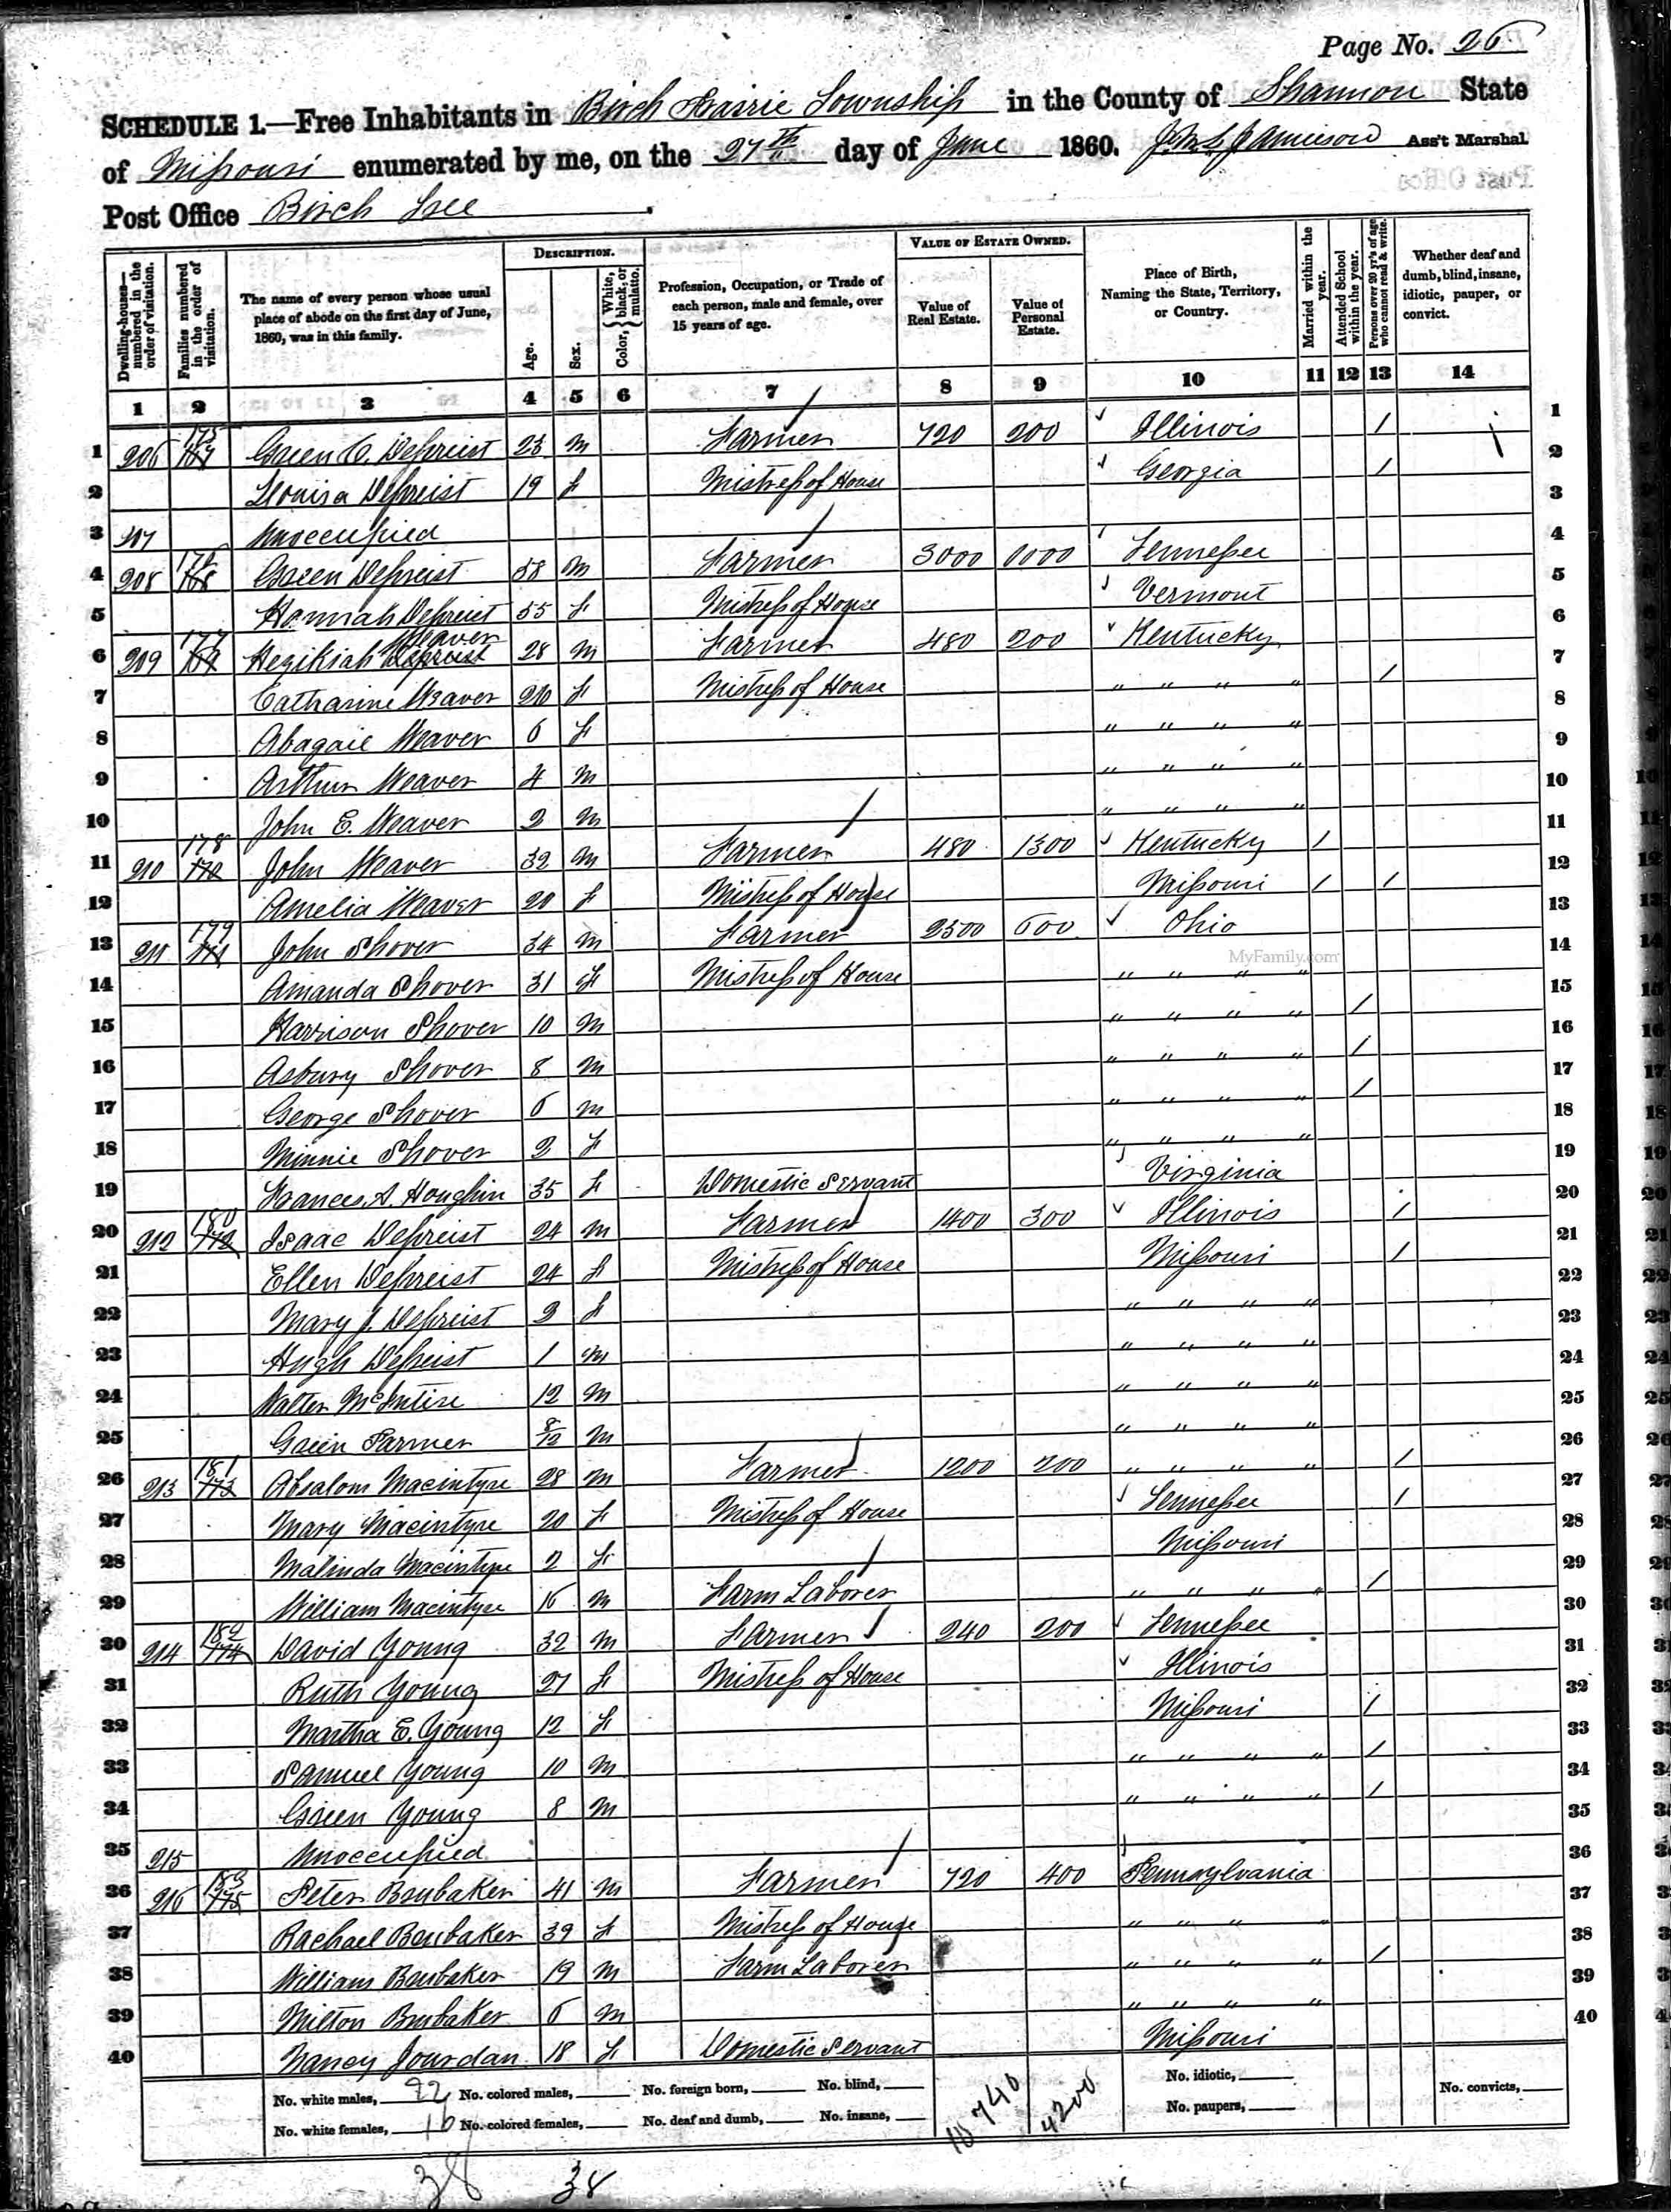 Page No. 26
SCHEDULE 1.—Free Inhabitants in Birch Prairie Township in the County of Shannon State
of Missouri enumerated by me, on the 27th day of June 1860. Jamieson Ass't Marshal.
Post Office Birch Tree
Dwelling-houses—numbered in the order of visitation.
Families numbered in the order of visitation.
The name of every person whose usual place of abode on the first day of June, 1860, was in this family.
DESCRIPTION.
Age.
Sex.
Color, { White, black, or mulatto.
Profession, Occupation, or Trade of each person, male and female, over 15 years of age.
VALUE OF ESTATE OWNED.
Value of Real Estate.
Value of Personal Estate.
Place of Birth, Naming the State, Territory, or Country.
Married within the year.
Attended School within the year.
Persons over 20 yr's of age who cannot read & write.
Whether deaf and dumb, blind, insane, idiotic, pauper, or convict.
1 2 3 4 5 6 7 8 9 10 11 12 13 14
1 206 175 167 Green C. Depreist 23 m Farmer 720 200 Illinois / 1
2 Louisa Depreist 19 f Mistress of House Georgia / 2
3 207 Unoccupied 3
4 208 176 168 Green Depreist 58 m Farmer 3000 1000 Tennessee 4
5 Hannah Depreist 55 f Mistress of House Vermont 5
6 209 177 169 Hezikiah Weaver Depreist 28 m Farmer 480 200 Kentucky 6
7 Catharine Weaver 26 f Mistress of House " " " " / 7
8 Abagail Weaver 6 f " " " " 8
9 Arthur Weaver 4 m " " " " 9
10 John E. Weaver 2 m " " " " 10
11 210 178 170 John Weaver 32 m Farmer 480 1300 Kentucky / 11
12 Amelia Weaver 20 f Mistress of House Missouri / / 12
13 211 179 171 John Shover 34 m Farmer 2500 600 Ohio 13
14 Amanda Shover 31 f Mistress of House " " " " 14
MyFamily.com
15 Harrison Shover 10 m " " " " / 15
16 Asbury Shover 8 m " " " " / 16
17 George Shover 6 m " " " " / 17
18 Minnie Shover 2 f " " " " 18
19 Frances A. Houghin 35 f Domestic Servant Virginia 19
20 212 180 172 Isaac Depreist 24 m Farmer 1400 300 Illinois / 20
21 Ellen Depreist 24 f Mistress of House Missouri / 21
22 Mary J. Depreist 3 f " " " " 22
23 Hugh Depreist 1 m " " " " 23
24 Walter McIntire 12 m " " " " 24
25 Green Farmer 8/12 m " " " " 25
26 213 181 173 Absalom Macintyre 28 m Farmer 1200 200 " " " " / 26
27 Mary Macintyre 20 f Mistress of House Tennessee / 27
28 Malinda Macintyre 2 f Missouri 28
29 William Macintyre 16 m Farm Laborer " " " " / 29
30 214 182 174 David Young 32 m Farmer 240 200 Tennessee 30
31 Ruth Young 27 f Mistress of House Illinois 31
32 Martha E. Young 12 f Missouri / 32
33 Samuel Young 10 m " " " " / 33
34 Green Young 8 m " " " " / 34
35 215 Unoccupied 35
36 216 183 175 Peter Brubaker 41 m Farmer 720 400 Pennsylvania 36
37 Rachael Brubaker 39 f Mistress of House " " " " 37
38 William Brubaker 19 m Farm Laborer " " " " / 38
39 Milton Brubaker 6 m " " " " 39
40 Nancy Jourdan 18 f Domestic Servant Missouri 40
No. white males, 22 No. colored males, No. foreign born, No. blind, No. idiotic,
No. white females, 16 No. colored females, No. deaf and dumb, No. insane, No. paupers, No. convicts,
4200
38 38